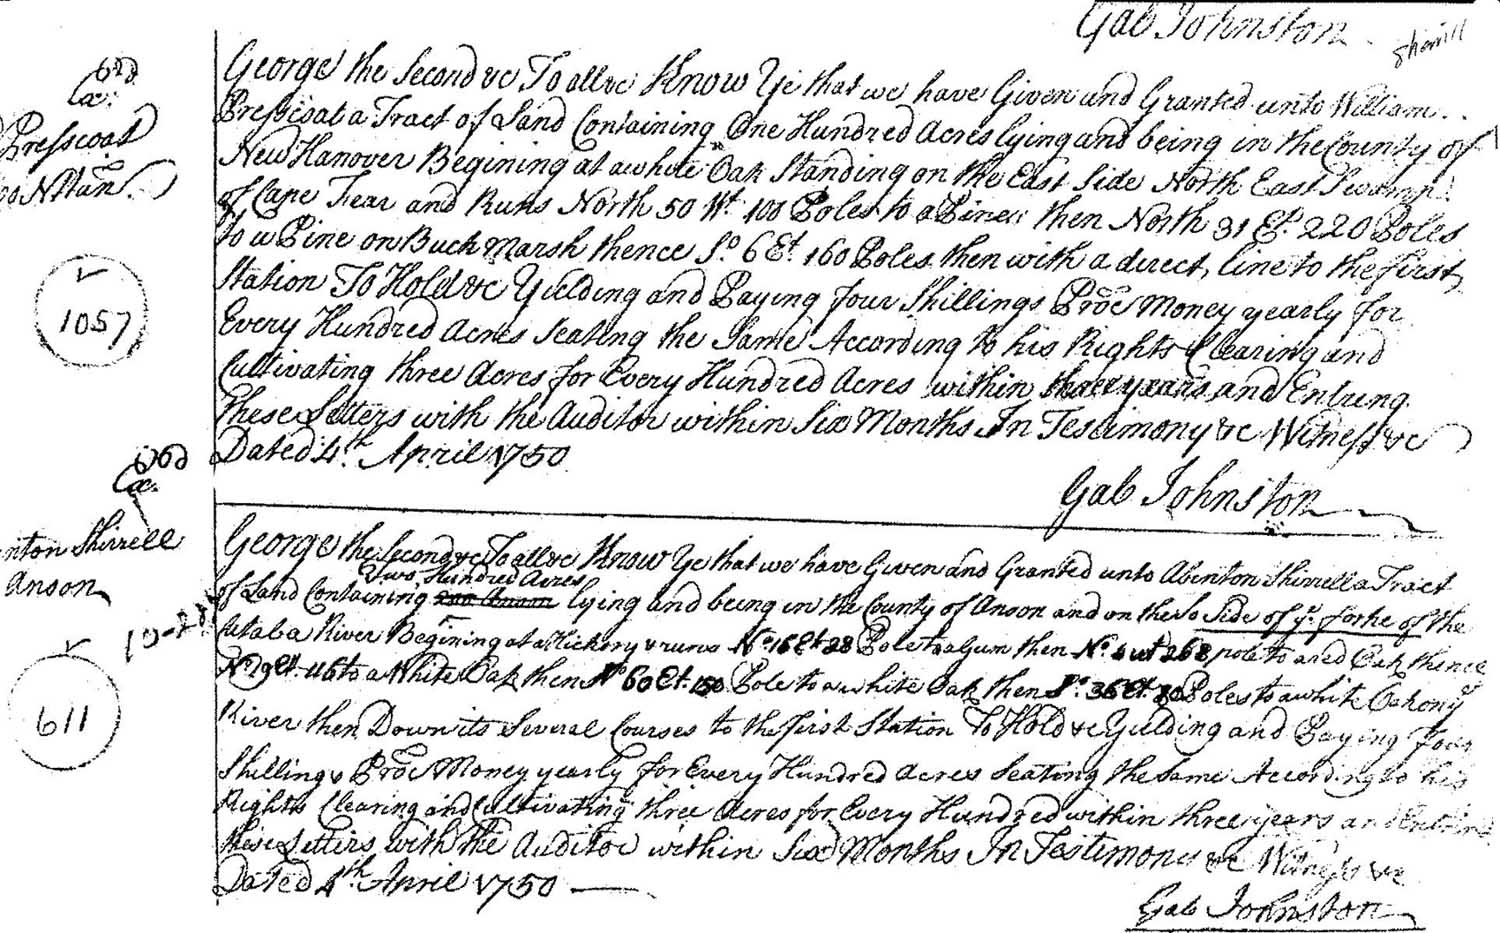 Gab Johnston
Sherrill
George the Second &c To all &c Know Ye that we have Given and Granted unto William
Presscoat a Tract of Land Containing One Hundred Acres lying and being in the County of
New Hanover Begining at a white Oak Standing on the East Side North East Swamp
of Cape Fear and Runs North 50 Wt. 100 Poles to a Pine then North 31 Et. 220 Poles
to a Pine on Buck Marsh thence So. 6 Et. 160 Poles then with a direct line to the first
Station To Hold &c Yielding and Paying four Shillings Proc Money yearly for
Every Hundred Acres Seating the Same According to his Rights Clearing and
Cultivating three Acres for Every Hundred Acres within three years and Entring
these Letters with the Auditor within Six Months In Testimony &c Witness &c
Dated 4th. April 1750
Gab Johnston
Presscoat
1057
George the Second &c To all &c Know Ye that we have Given and Granted unto Abinton Shirrell a Tract
Two Hundred Acres
of Land Containing lying and being in the County of Anson and on the So Side of ye. forke of the
Cataba River Begining at a Hickory & runs No. 16 Et 28 Pole to a Gum then No. Wt 268 pole to a red Oak thence
No. 19 Et. 116 to a White Oak then No 60 Et. 150 Pole to a white Oak then So. 36 Et. 80 Poles to a white Oak on ye
River then Down its Several Courses to the first Station To Hold &c Yielding and Paying four
Shillings Proc Money yearly for Every Hundred acres Seating the Same According to his
Rights Clearing and Cultivating three Acres for Every Hundred within three years and Entring
these Letters with the Auditor within Six Months In Testimony &c Witness &c
Dated 4th April 1750
Gab Johnston
nton Shirrell
Anson
611